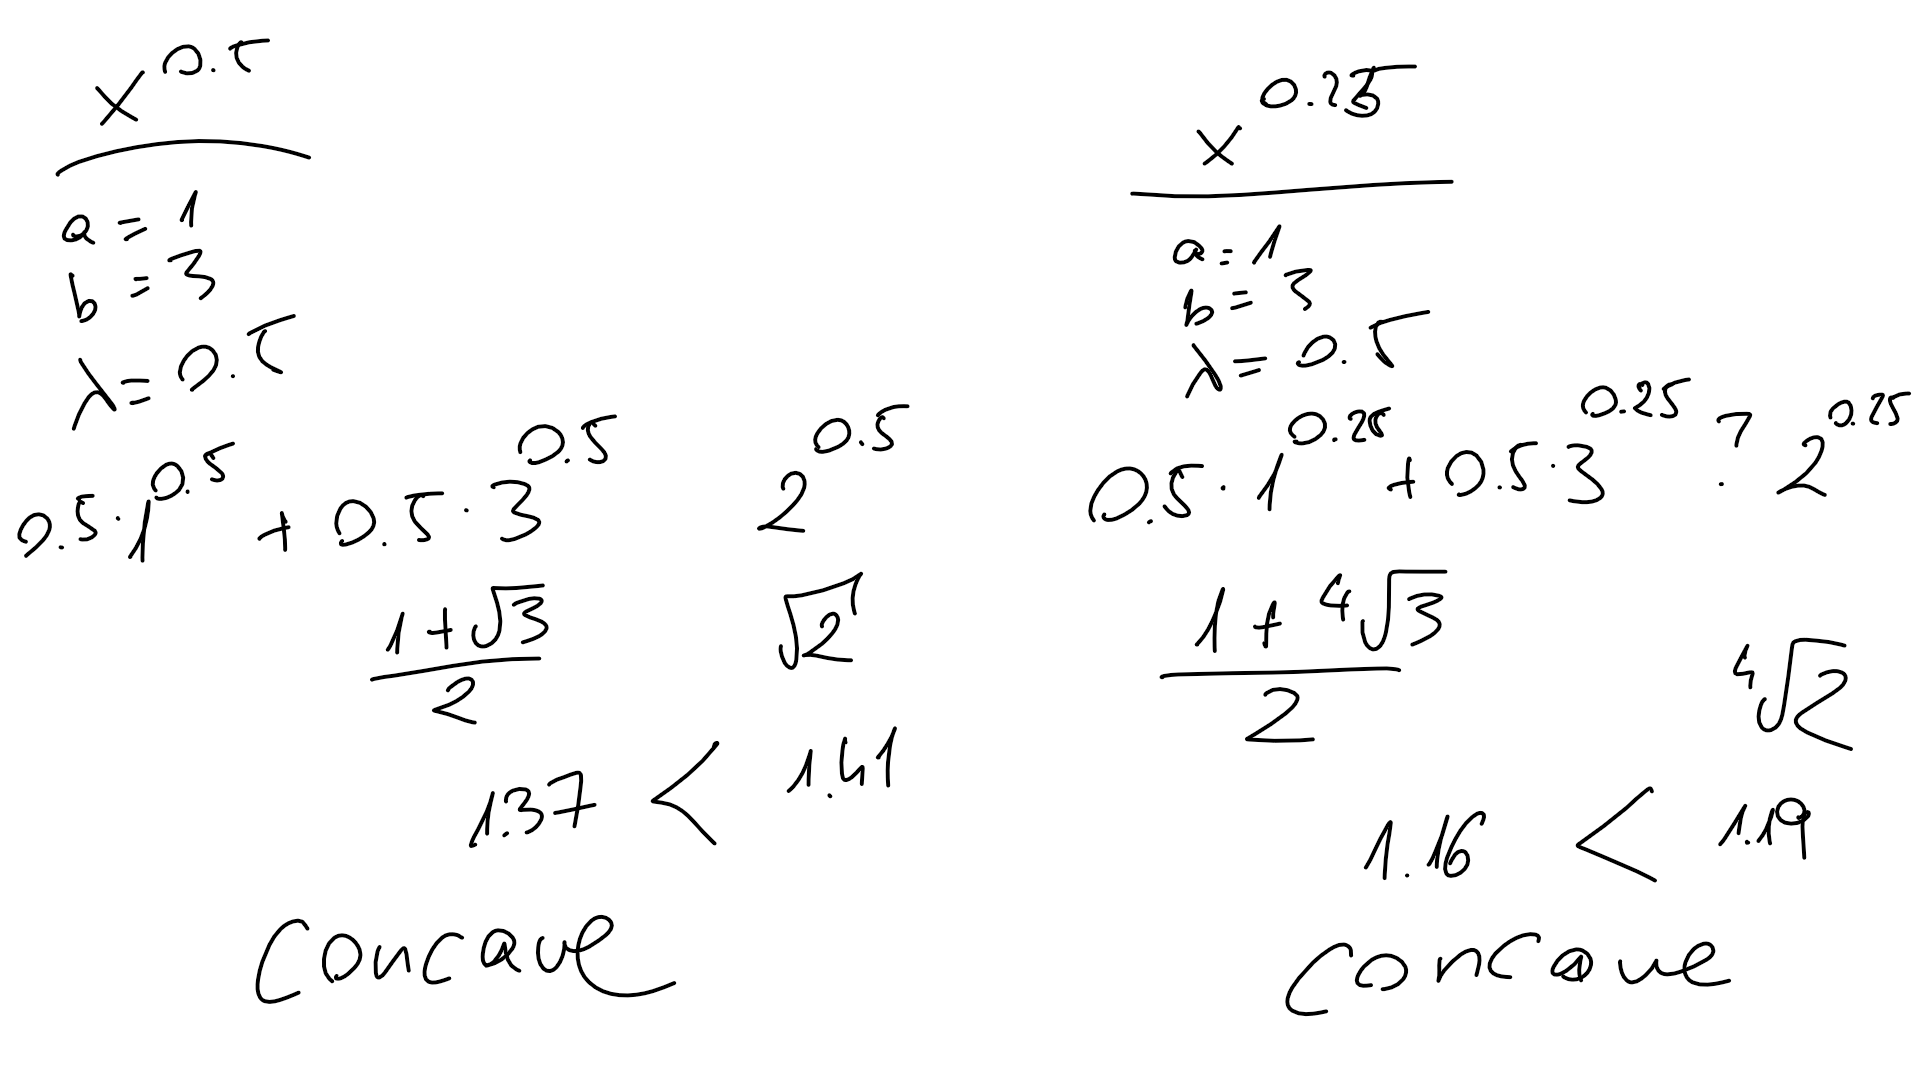 x^0.5
a = 1
b = 3
λ = 0.5
0.5 · 1^0.5 + 0.5 · 3^0.5 2^0.5
(1 + √3)/2 √2
1.37 < 1.41
concave
x^0.25
a = 1
b = 3
λ = 0.5
0.5 · 1^0.25 + 0.5 · 3^0.25 ? 2^0.25
(1 + ⁴√3)/2 ⁴√2
1.16 < 1.19
concave